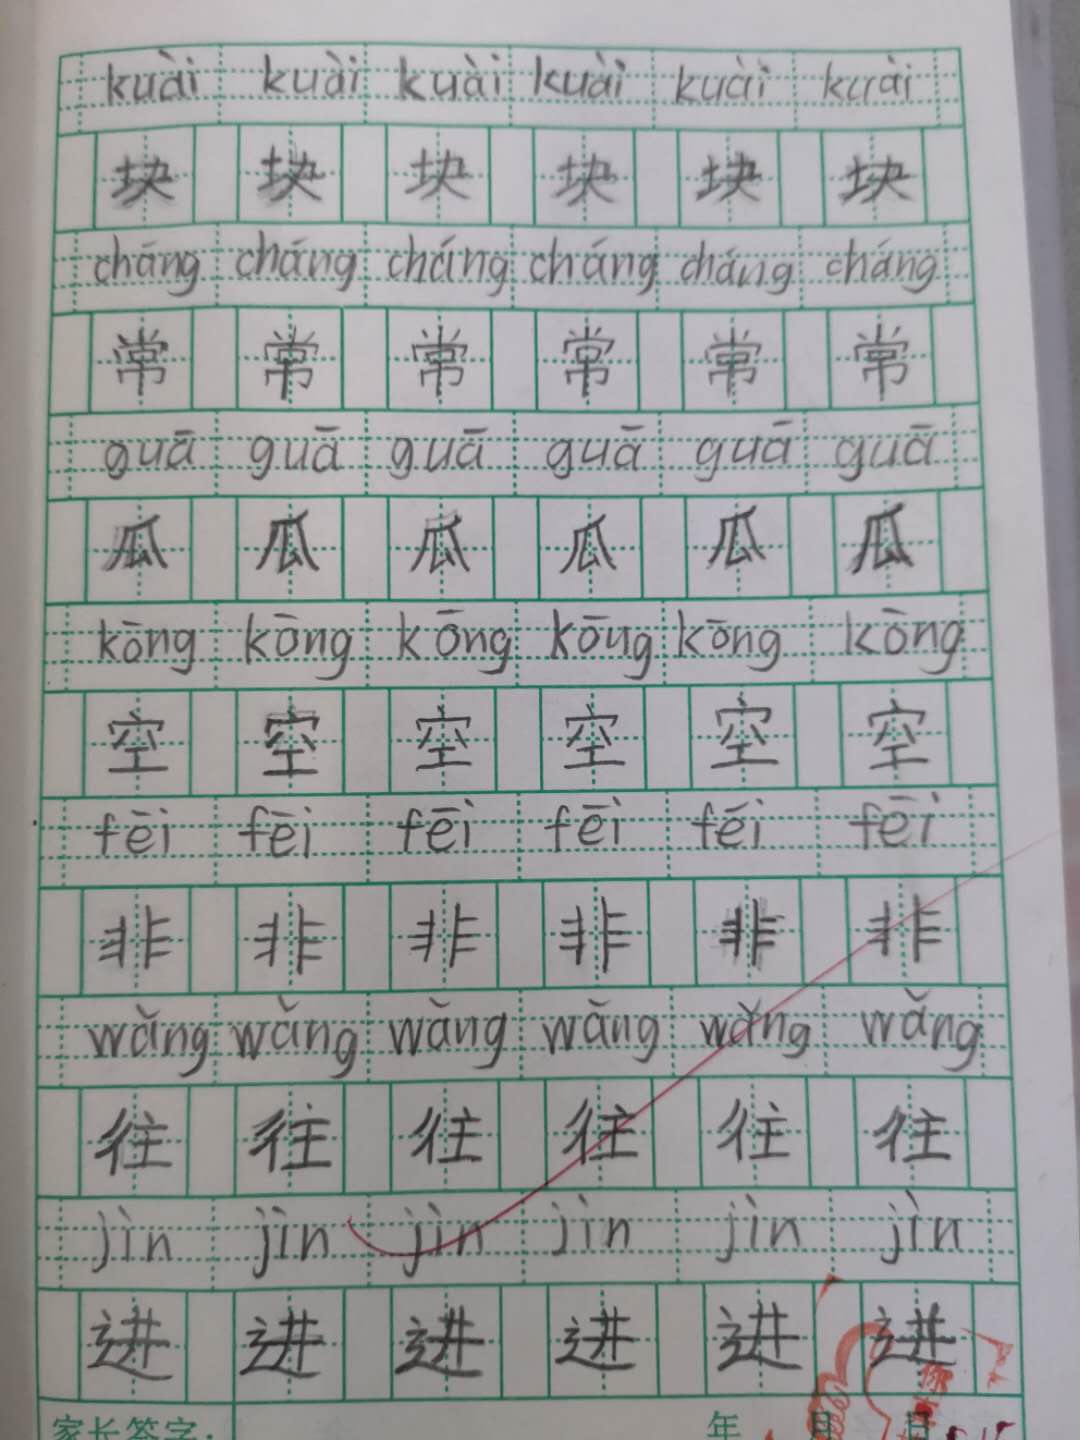 kuài kuài kuài kuài kuài kuài
块 块 块 块 块 块
cháng cháng cháng cháng cháng cháng
常 常 常 常 常 常
guā guā guā guā guā guā
瓜 瓜 瓜 瓜 瓜 瓜
kōng kōng kōng kōng kōng kōng
空 空 空 空 空 空
fēi fēi fēi fēi fēi fēi
非 非 非 非 非 非
wǎng wǎng wǎng wǎng wǎng wǎng
往 往 往 往 往 往
jìn jìn jìn jìn jìn jìn
进 进 进 进 进 进
家长签字: 年 月 日